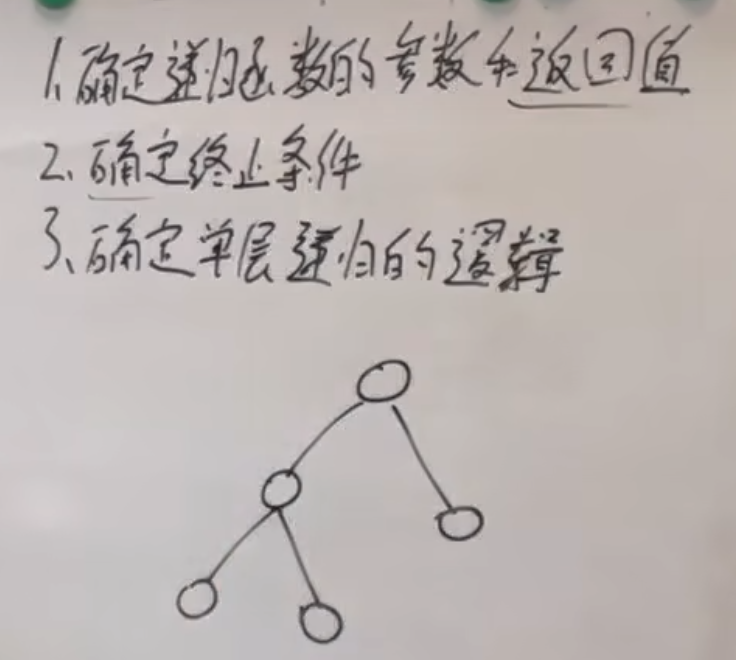 1、确定递归函数的参数和返回值
2、确定终止条件
3、确定单层递归的逻辑